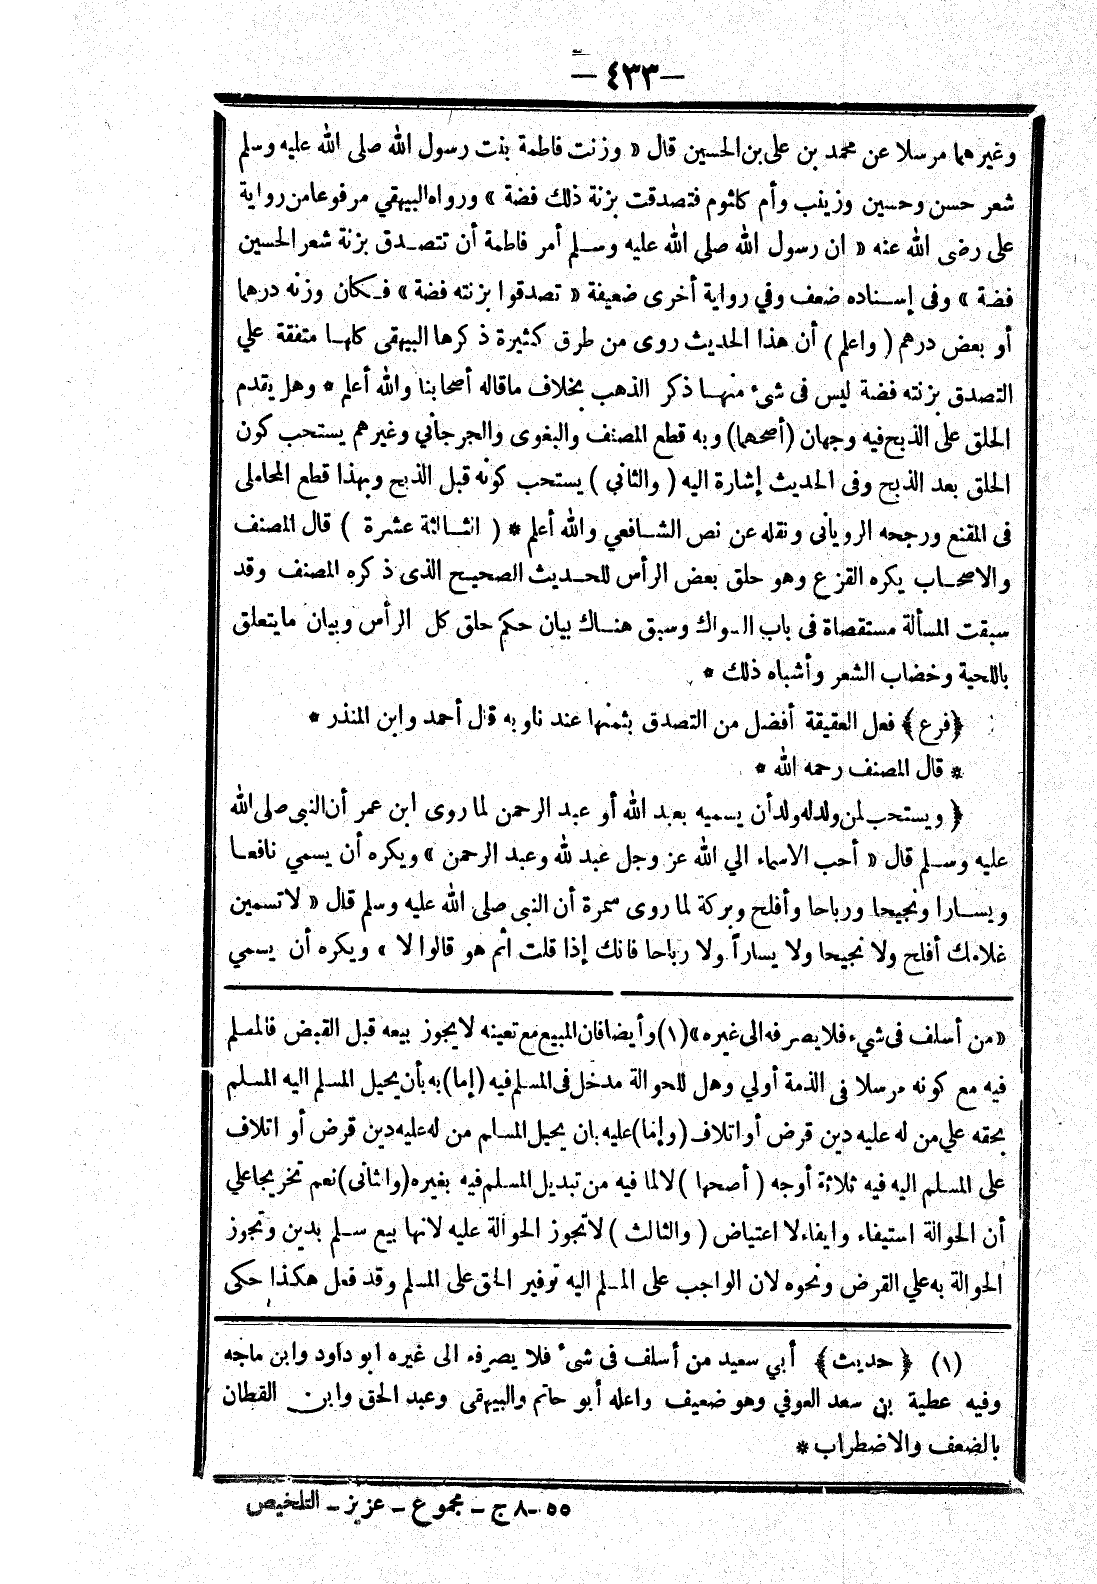 —٤٣٣—
وغيرهما مرسلا عن محمد بن على بن الحسين قال « وزنت فاطمة بنت رسول الله صلى الله عليه وسلم
شعر حسن وحسين وزينب وأم كلثوم فتصدقت بزنة ذلك فضة » ورواه البيهقي مرفوعا من رواية
على رضى الله عنه « ان رسول الله صلي الله عليه وسلم أمر فاطمة أن تتصدق بزنة شعر الحسين
فضة » وفى إسناده ضعف وفي رواية أخرى ضعيفة « تصدقوا بزنته فضة » فكان وزنه درهما
أو بعض درهم ( واعلم ) أن هذا الحديث روى من طرق كثيرة ذكرها البيهقى كلها متفقة علي
التصدق بزنته فضة ليس فى شىء منها ذكر الذهب بخلاف ماقاله أصحابنا والله أعلم * وهل يقدم
الحلق على الذبح فيه وجهان (أصحهما) وبه قطع المصنف والبغوى والجرجاني وغيرهم يستحب كون
الحلق بعد الذبح وفى الحديث إشارة اليه ( والثاني ) يستحب كونه قبل الذبح وبهذا قطع المحاملى
فى المقنع ورجحه الرويانى ونقله عن نص الشافعي والله أعلم * ( الثالثة عشرة ) قال المصنف
والاصحاب يكره القزع وهو حلق بعض الرأس للحديث الصحيح الذى ذكره المصنف وقد
سبقت المسألة مستقصاة فى باب السواك وسبق هناك بيان حكم حلق كل الرأس وبيان مايتعلق
باللحية وخضاب الشعر وأشباه ذلك *
﴿فرع﴾ فعل العقيقة أفضل من التصدق بثمنها عندنا وبه قال أحمد وابن المنذر *
* قال المصنف رحمه الله *
﴿ ويستحب لمن ولد له ولد أن يسميه بعبد الله أو عبد الرحمن لما روى ابن عمر أن النبى صلى الله
عليه وسلم قال « أحب الاسماء الي الله عز وجل عبد لله وعبد الرحمن » ويكره أن يسمي نافعا
ويسارا ونجيحا ورباحا وأفلح وبركة لما روى سمرة أن النبى صلى الله عليه وسلم قال « لاتسمين
غلامك أفلح ولا نجيحا ولا يساراً ولا رباحا فانك إذا قلت أثم هو قالوا لا » ويكره أن يسمي
«من أسلف فى شيء فلا يصرفه الى غيره» (١) وأيضا فان المبيع مع تعينه لايجوز بيعه قبل القبض فالمسلم
فيه مع كونه مرسلا فى الذمة أولي وهل للحوالة مدخل فى المسلم فيه (إما) به بأن يحيل المسلم اليه المسلم
بحقه علي من له عليه دين قرض أو اتلاف (وإما) عليه بان يحيل المسلم من له عليه دين قرض أو اتلاف
على المسلم اليه فيه ثلاثة أوجه ( أصحها ) لا لما فيه من تبديل المسلم فيه بغيره (والثانى) نعم تخريجا علي
أن الحوالة استيفاء وايفاء لا اعتياض ( والثالث ) لاتجوز الحوالة عليه لانها بيع سلم بدين وتجوز
الحوالة به علي القرض ونحوه لان الواجب على المسلم اليه توفير الحق على المسلم وقد فعل هكذا حكى
(١) ﴿حديث﴾ أبي سعيد من أسلف فى شىء فلا يصرفه الى غيره ابو داود وابن ماجه
وفيه عطية بن سعد العوفي وهو ضعيف واعله أبو حاتم والبيهقى وعبد الحق وابن القطان
بالضعف والاضطراب *
٥٥-٨ج – مجموع – عزيز – التلخيص